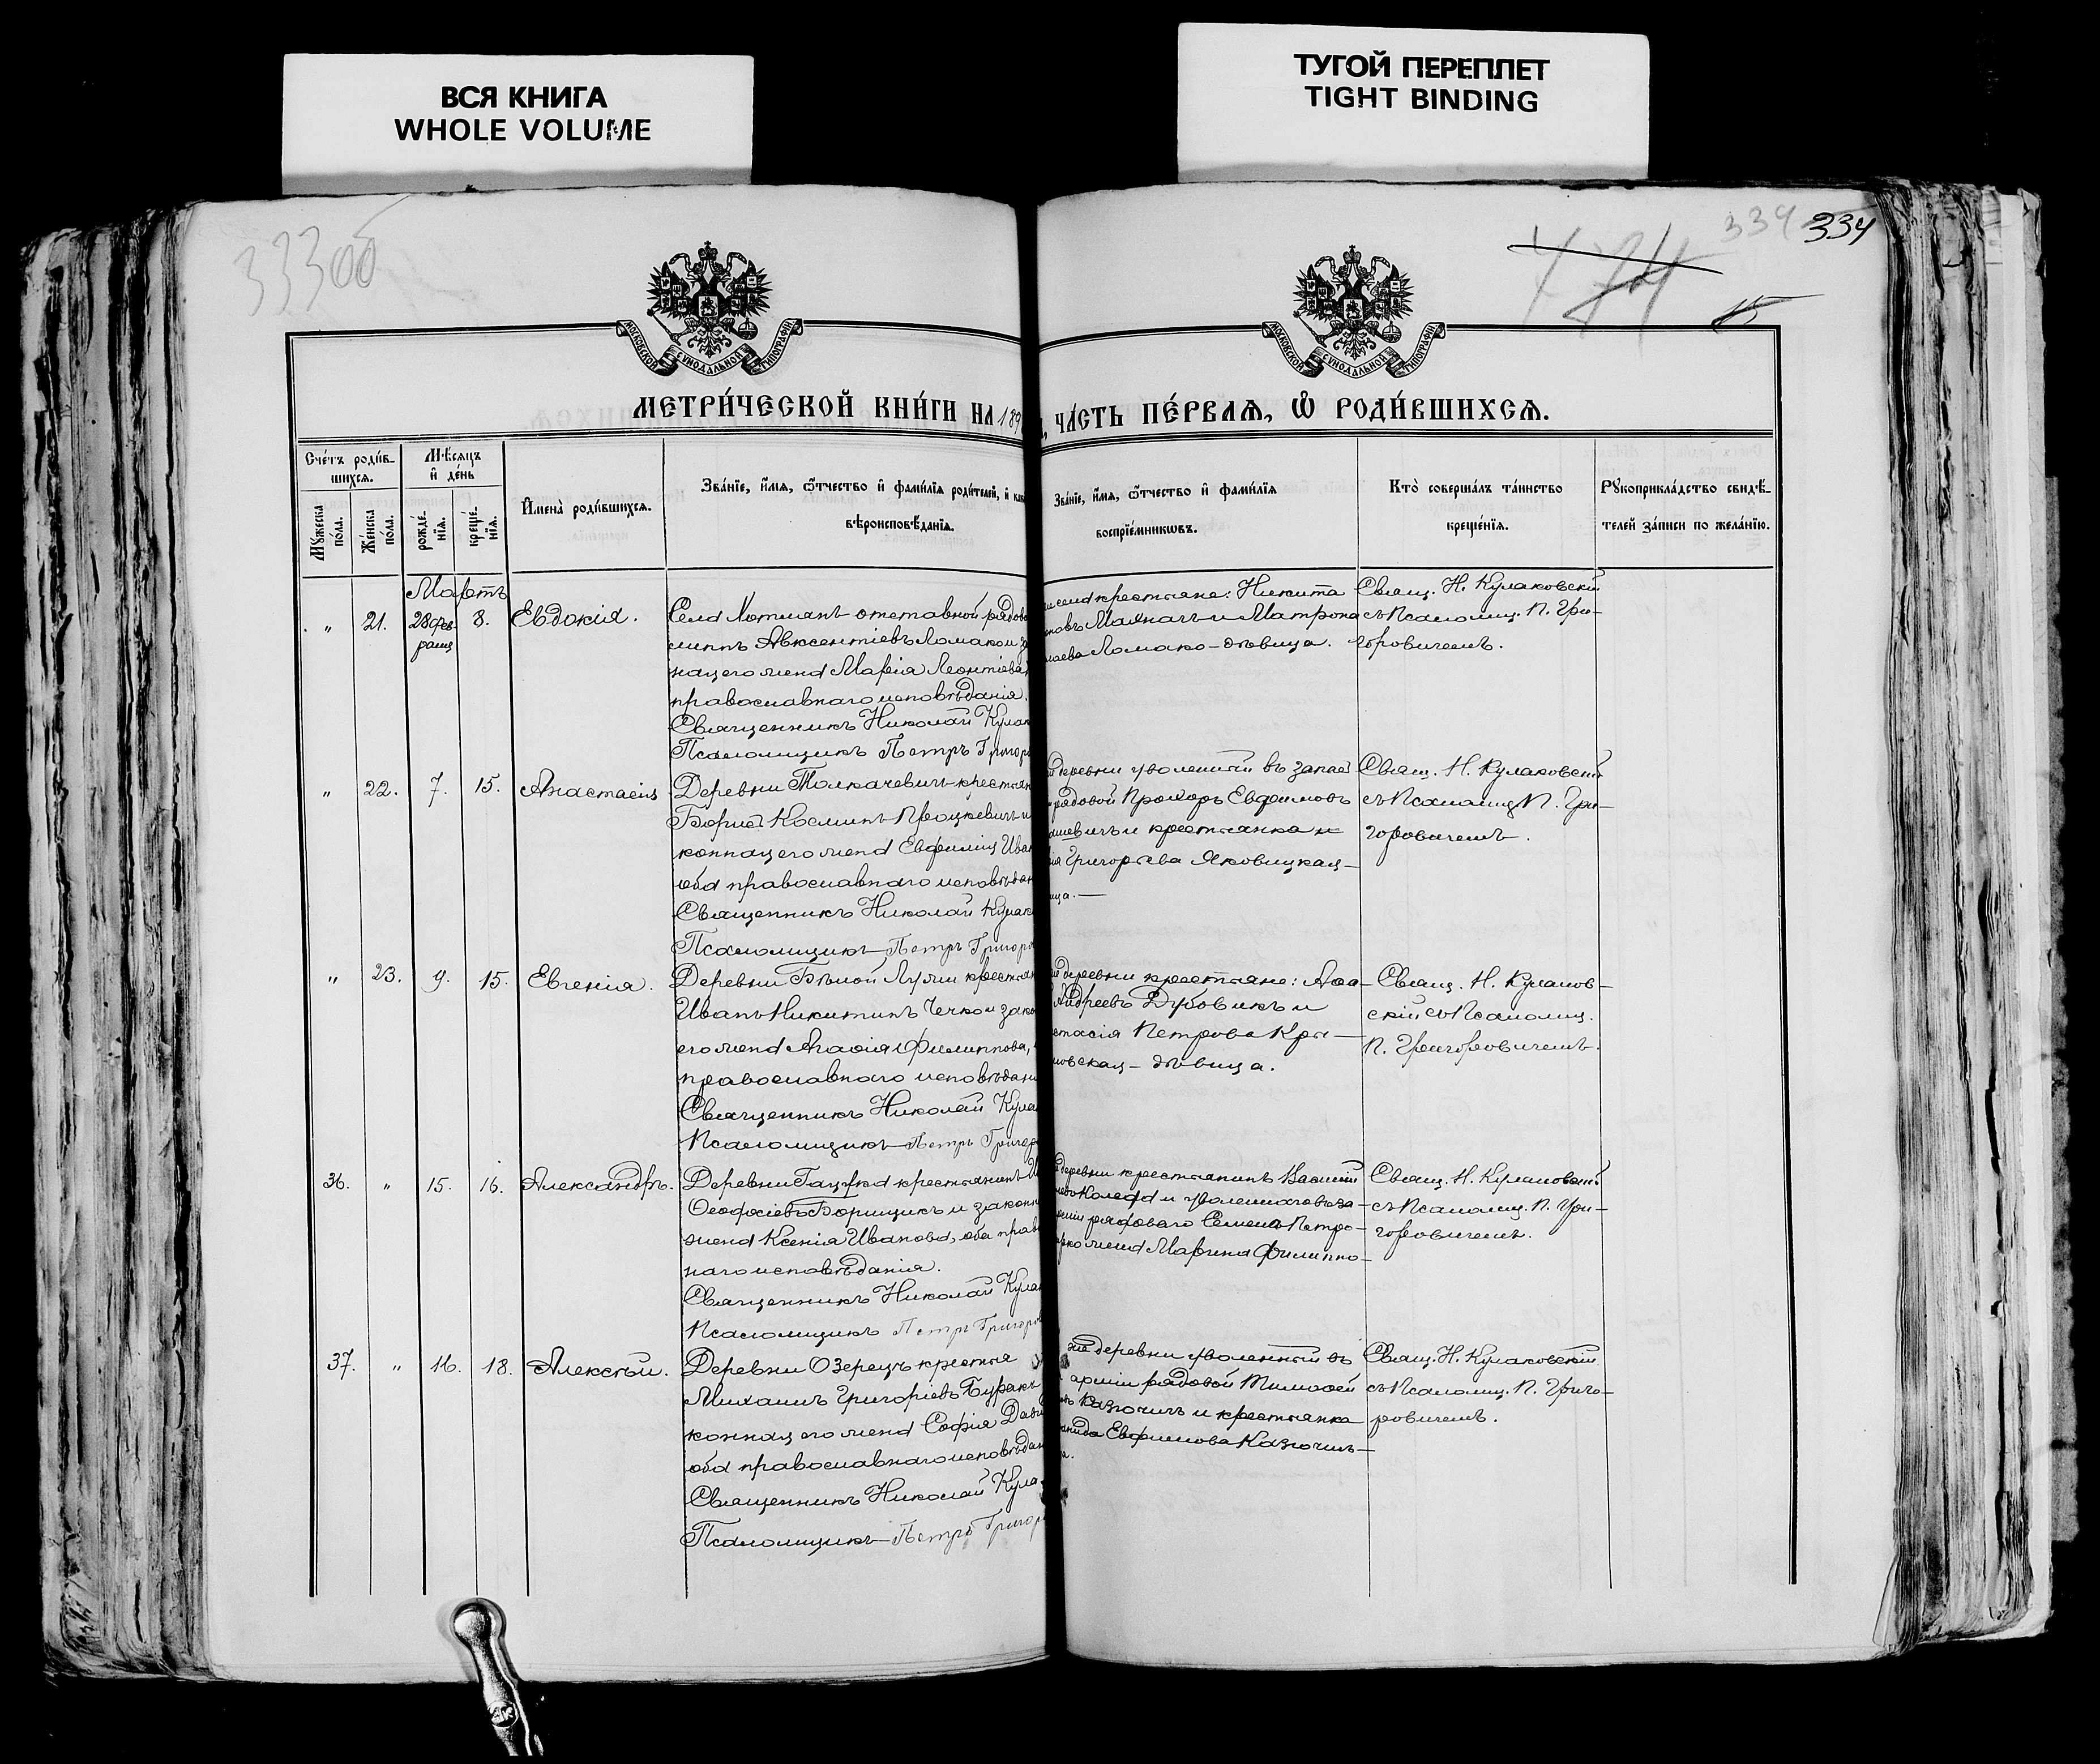 ВСЯ КНИГА
WHOLE VOLUME
ТУГОЙ ПЕРЕПЛЕТ
TIGHT BINDING
333об
334
334
МОСКОВСКОЙ СѴНОДАЛЬНОЙ ТИПОГРАФІИ
МОСКОВСКОЙ СѴНОДАЛЬНОЙ ТИПОГРАФІИ
МЕТРИ́ЧЕСКОЙ КНИ́ГИ НА 189
ЧА́СТЬ ПЕ́РВАѦ, Ѿ РОДИ́ВШИХСѦ.
Сче́тъ роди́в-
шихсѧ.
Мꙋжеска по́ла.
Же́нска по́ла.
Мѣ́сѧцъ
и҆ де́нь
рожде́-
нїѧ.
креще́-
нїѧ.
И҆мена̀ роди́вшихсѧ.
Зва́нїе, и҆́мѧ, ѻ҆́тчество и҆ фами́лїѧ роди́телей, и҆
вѣроисповѣ́данїѧ.
Зва́нїе, и҆́мѧ, ѻ҆́тчество и҆ фами́лїѧ
воспрїе́мникѡвъ.
Кто̀ соверша́лъ та́инство
креще́нїѧ.
Рꙋкоприкла́дство свидѣ́-
телей за́писи по жела́нїю.
Мартъ
" 21. 28 фев- 8. Евдокія.
раля
Села отставной рядово
Авксентіевъ Ломако и за
ная его жена Марѳія Леонтіева,
православнаго исповѣданія.
Священникъ Николай Кулак
Псаломщикъ Петръ Григоро
села крестьяне: Никита
и Матрона
Ломако-дѣвица.
Свящ. Н. Кулаковскій
съ Псаломщ. П. Гри-
горовичемъ.
" 22. 7. 15. Анастасія
Деревни Толкачевичъ крестьян
Борисъ Косминъ Процкевичъ и
конная его жена Евфимія Иван
оба православнаго исповѣдан
Священникъ Николай Кулако
Псаломщикъ Петръ Григоро
деревни уволенный въ запасъ
рядовой Прохоръ Евфимовъ
и крестьянка
Григорьева Яковицкая-
ица.—
Свящ. Н. Кулаковскій
съ Псаломщ. П. Гри-
горовичемъ.
" 23. 9. 15. Евгенія.
Деревни Бѣлой Лужи крестьян
Иванъ Никитинъ Чечко и зако
его жена Агаѳія Филиппова,
православнаго исповѣдані
Священникъ Николай Кула
Псаломщикъ Петръ Григоро
деревни крестьяне:
Андреевъ Дубовикъ и
стасія Петрова Кры-
новская-дѣвица.
Свящ. Н. Кулаков-
скій съ Псаломщ.
П. Григоровичемъ.
36. " 15. 16. Александръ.
Деревни крестьянинъ
Борищикъ и законн
жена Ксенія Иванова, оба прав
наго исповѣданія.
Священникъ Николай Кулак
Псаломщикъ Петръ Григоро
деревни крестьянинъ Василій
Коледа и уволеннаго въ за-
рядоваго Семена Петро-
жена Марина Филиппо-
Свящ. Н. Кулаковскій
съ Псаломщ. П. Гри-
горовичемъ.
37. " 16. 18. Алексѣй.
Деревни Озерецъ крестья
Михаилъ Григоріевъ Буракъ
конная его жена Софія Дави
оба православнаго исповѣдан
Священникъ Николай Кула
Псаломщикъ Петръ Григоро
деревни уволенный въ
арміи рядовой Тимоѳей
Казючицъ и крестьянка
Евфимова Казючицъ-
а.
Свящ. Н. Кулаковскій
съ Псаломщ. П. Григо-
ровичемъ.